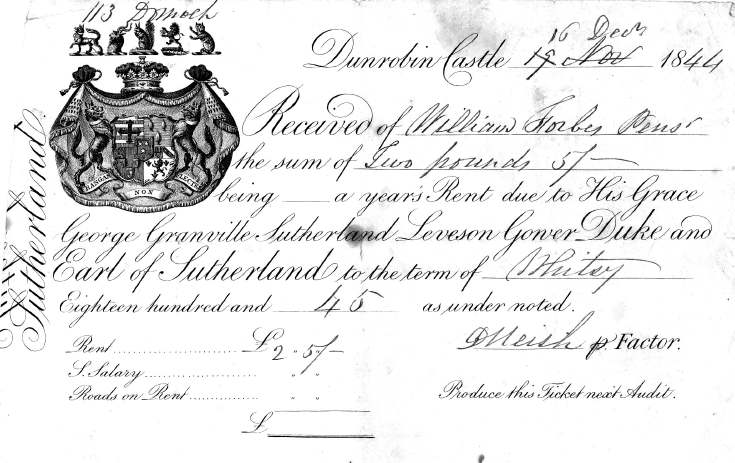 113 Dornoch
16 Decr
Dunrobin Castle 19 Nov 1844
Received of William Forbes Pensr
the sum of Two pounds 5/-
being a year's Rent due to His Grace
George Granville Sutherland Leveson Gower Duke and
Earl of Sutherland to the term of Whitsy
Eighteen hundred and 45 as under noted.
Rent £2 " 5/-
S. Salary " "
Roads on Rent " "
£
p. Factor.
Produce this Ticket next Audit.
Sutherland
FRANGAS NON FLECTES